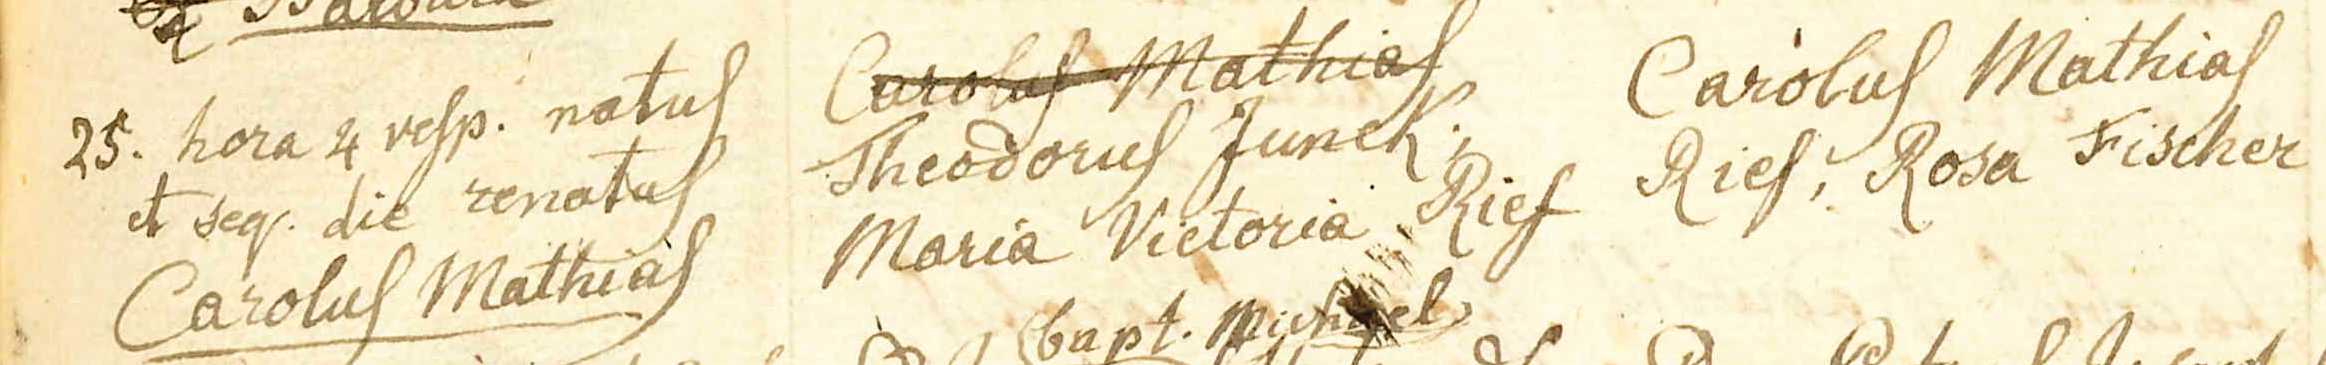 & Barbara
25. hora 4 vesp. natus
et seq. die renatus
Carolus Mathias
Carolus Mathias
Theodorus Junek;
Maria Victoria Rief
bapt. Michael
Carolus Mathias
Rief, Rosa Fischer